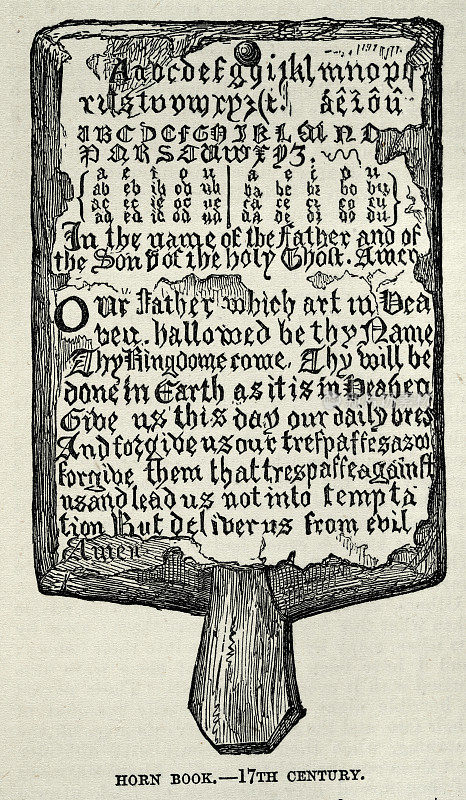 Aabcdefghijklmnopq
rsstuvwxyz &c. áêîôû
ABCDEFGHIKLMNO
PQRSTUWXYZ.
a e i o u | a e i o u
ab eb ib ob ub | ba be bi bo bu
ac ec ic oc uc | ca ce ci co cu
ad ed id od ud | da de di do du
In the name of the Father and of
the Son & of the holy Ghost. Amen
Our Father which art in Hea
ven. hallowed be thy Name
Thy Kingdome come, Thy will be
done in Earth as it is in Heaven
Give us this day our daily bred
And forgive us our trespasses as we
forgive them that trespasse against
us and lead us not into tempta
tion But deliver us from evil
Amen
HORN BOOK.—17TH CENTURY.